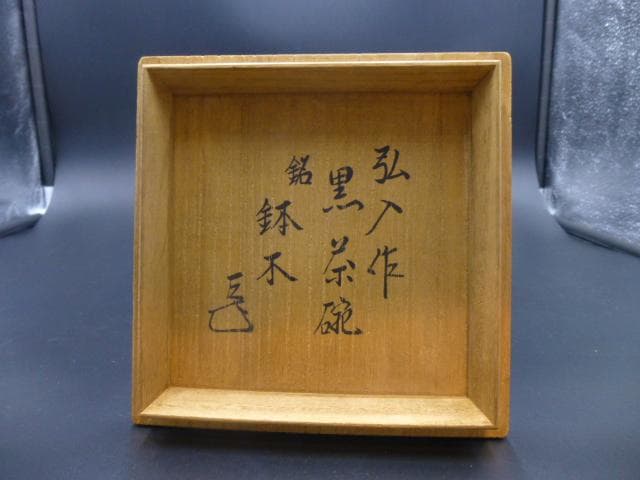 弘入作
黒茶碗
銘
鉢木